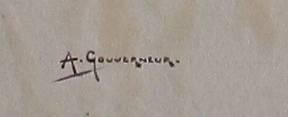 A. Gouverneur.